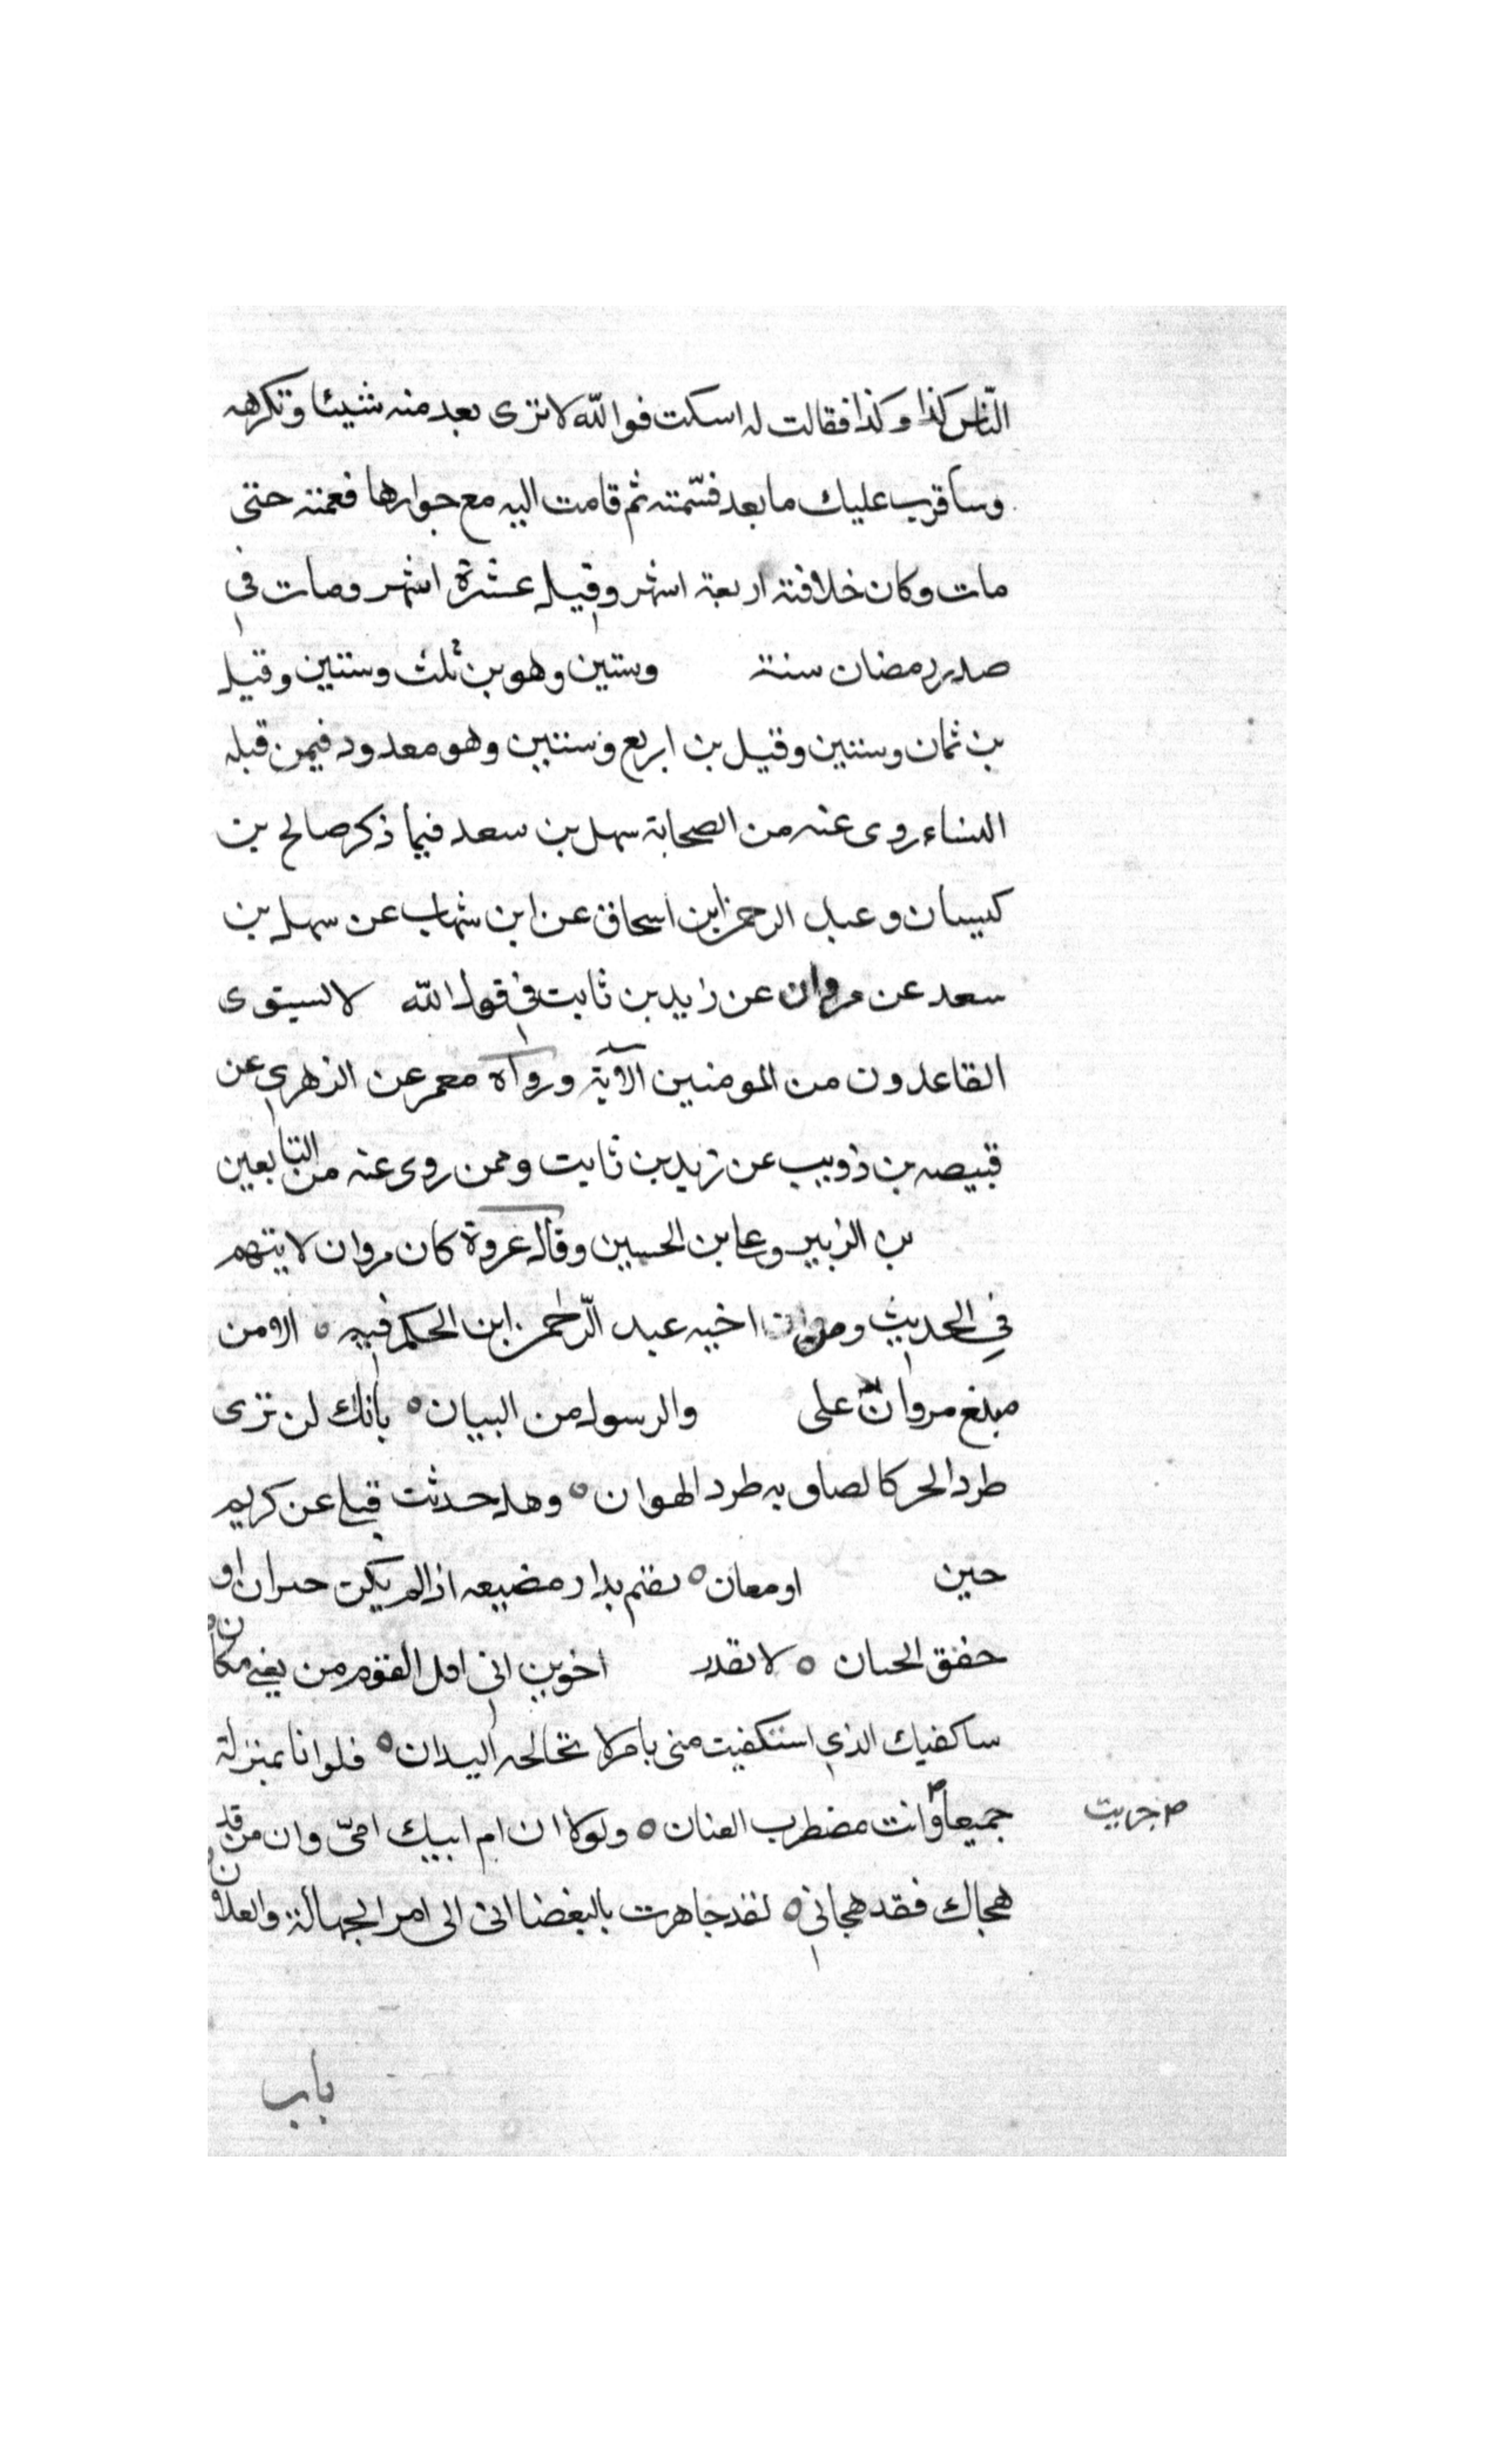 النّاس كذا وكذا فقالت له اسكت فوالله لا ترى بعد منه شيئا وتكرهه
وسأقرب عليك ما بعد فسّمته ثم قامت اليه مع جوارها فغمته حتى
مات وكان خلافته اربعة اشهر وقيل عشرة اشهر ومات في
صدر رمضان سنة وستين وهو بن ثلث وستين وقيل
بن ثمان وستين وقيل بن اربع وستين وهو معدود فيمن قبله
النساء روى عنه من الصحابة سهل بن سعد فيما ذكر صالح بن
كيسان وعبد الرحمن ابن اسحاق عن ابن شهاب عن سهل بن
سعد عن مروان عن زيد بن ثابت في قول الله لا يستوى
القاعدون من المومنين الآية ورواه معمر عن الزهري عن
قبيصه بن ذويب عن زيد بن ثابت وممن روى عنه من التابعين
بن الزبير وعلى بن الحسين وقال عروة كان مروان لا يتهم
في الحديث ومن اخيه عبد الرّحمن ابن الحكم فيه ه الا من
مبلغ مروان على والرسول من البيان ه بانك لن ترى
طرد الحر كالصاق به طرد الهوان ه وهل حدثت قبلي عن كريم
حين او معان ه يقيم بدار مضيعه اذا لم يكن حيران او
خفق الجنان ه لا تقذر اخوين انى اقل القوم من يغنى مكانه
ساكفيك الذي استكفيت منى بامر لا تخالجه اليدان ه فلو انا بمنزلة
جميعاً وانت مضطرب العنان ه ولولا ان ام ابيك امىّ وان من قد
هجاك فقد هجانى ه لقد جاهرت بالبغضا انى الى امر الجهالة والعلان
جريت
باب